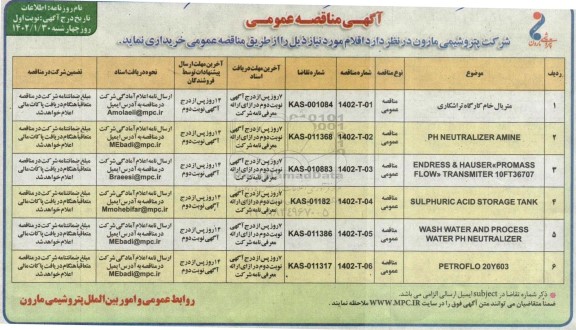 نام روزنامه: اطلاعات
تاریخ درج آگهی: نوبت اول
روز چهارشنبه ۱۴۰۲/۱/۳۰
آگهی مناقصه عمومی
شرکت پتروشیمی مارون در نظر دارد اقلام مورد نیاز ذیل را از طریق مناقصه عمومی خریداری نماید.
ردیف
موضوع
نوع مناقصه
شماره مناقصه
شماره تقاضا
آخرین مهلت دریافت اسناد
آخرین مهلت ارسال پیشنهادات توسط فروشندگان
نحوه دریافت اسناد
تضمین شرکت در مناقصه
۱
متریال خام کارگاه تراشکاری
مناقصه عمومی
1402-T-01
KAS-001084
۷روز پس از درج آگهی نوبت دوم در ازای ارائه معرفی نامه شرکت
۱۴ روز پس از درج آگهی نوبت دوم
ارسال نامه اعلام آمادگی شرکت در مناقصه به آدرس ایمیل
Amolaeii@mpc.ir
مبلغ ضمانتنامه شرکت در مناقصه متعاقباً هنگام دریافت پاکات مالی اعلام خواهد شد
۲
PH NEUTRALIZER AMINE
مناقصه عمومی
1402-T-02
KAS-011368
۷روز پس از درج آگهی نوبت دوم در ازای ارائه معرفی نامه شرکت
۱۴ روز پس از درج آگهی نوبت دوم
ارسال نامه اعلام آمادگی شرکت در مناقصه به آدرس ایمیل
MEbadi@mpc.ir
مبلغ ضمانتنامه شرکت در مناقصه متعاقباً هنگام دریافت پاکات مالی اعلام خواهد شد
۳
ENDRESS & HAUSER«PROMASS FLOW» TRANSMITER 10FT36707
مناقصه عمومی
1402-T-03
KAS-010883
۷روز پس از درج آگهی نوبت دوم در ازای ارائه معرفی نامه شرکت
۱۴ روز پس از درج آگهی نوبت دوم
ارسال نامه اعلام آمادگی شرکت در مناقصه به آدرس ایمیل
مبلغ ضمانتنامه شرکت در مناقصه متعاقباً هنگام دریافت پاکات مالی اعلام خواهد شد
۴
SULPHURIC ACID STORAGE TANK
مناقصه عمومی
1402-T-04
KAS-01182
۷روز پس از درج آگهی نوبت دوم در ازای ارائه معرفی نامه شرکت
۱۴ روز پس از درج آگهی نوبت دوم
ارسال نامه اعلام آمادگی شرکت در مناقصه به آدرس ایمیل
Mmohebifar@mpc.ir
مبلغ ضمانتنامه شرکت در مناقصه متعاقباً هنگام دریافت پاکات مالی اعلام خواهد شد
۵
WASH WATER AND PROCESS WATER PH NEUTRALIZER
مناقصه عمومی
1402-T-05
KAS-011386
۷روز پس از درج آگهی نوبت دوم در ازای ارائه معرفی نامه شرکت
۱۴ روز پس از درج آگهی نوبت دوم
ارسال نامه اعلام آمادگی شرکت در مناقصه به آدرس ایمیل
MEbadi@mpc.ir
مبلغ ضمانتنامه شرکت در مناقصه متعاقباً هنگام دریافت پاکات مالی اعلام خواهد شد
۶
PETROFLO 20Y603
مناقصه عمومی
1402-T-06
KAS-011317
۷روز پس از درج آگهی نوبت دوم در ازای ارائه معرفی نامه شرکت
۱۴ روز پس از درج آگهی نوبت دوم
ارسال نامه اعلام آمادگی شرکت در مناقصه به آدرس ایمیل
MEbadi@mpc.ir
مبلغ ضمانتنامه شرکت در مناقصه متعاقباً هنگام دریافت پاکات مالی اعلام خواهد شد
ذکر شماره تقاضا در subject ایمیل ارسالی الزامی می باشد.
ضمناً متقاضیان می توانند متن آگهی فوق را در سایت WWW.MPC.IR ملاحظه نمایند.
روابط عمومی و امور بین الملل پتروشیمی مارون